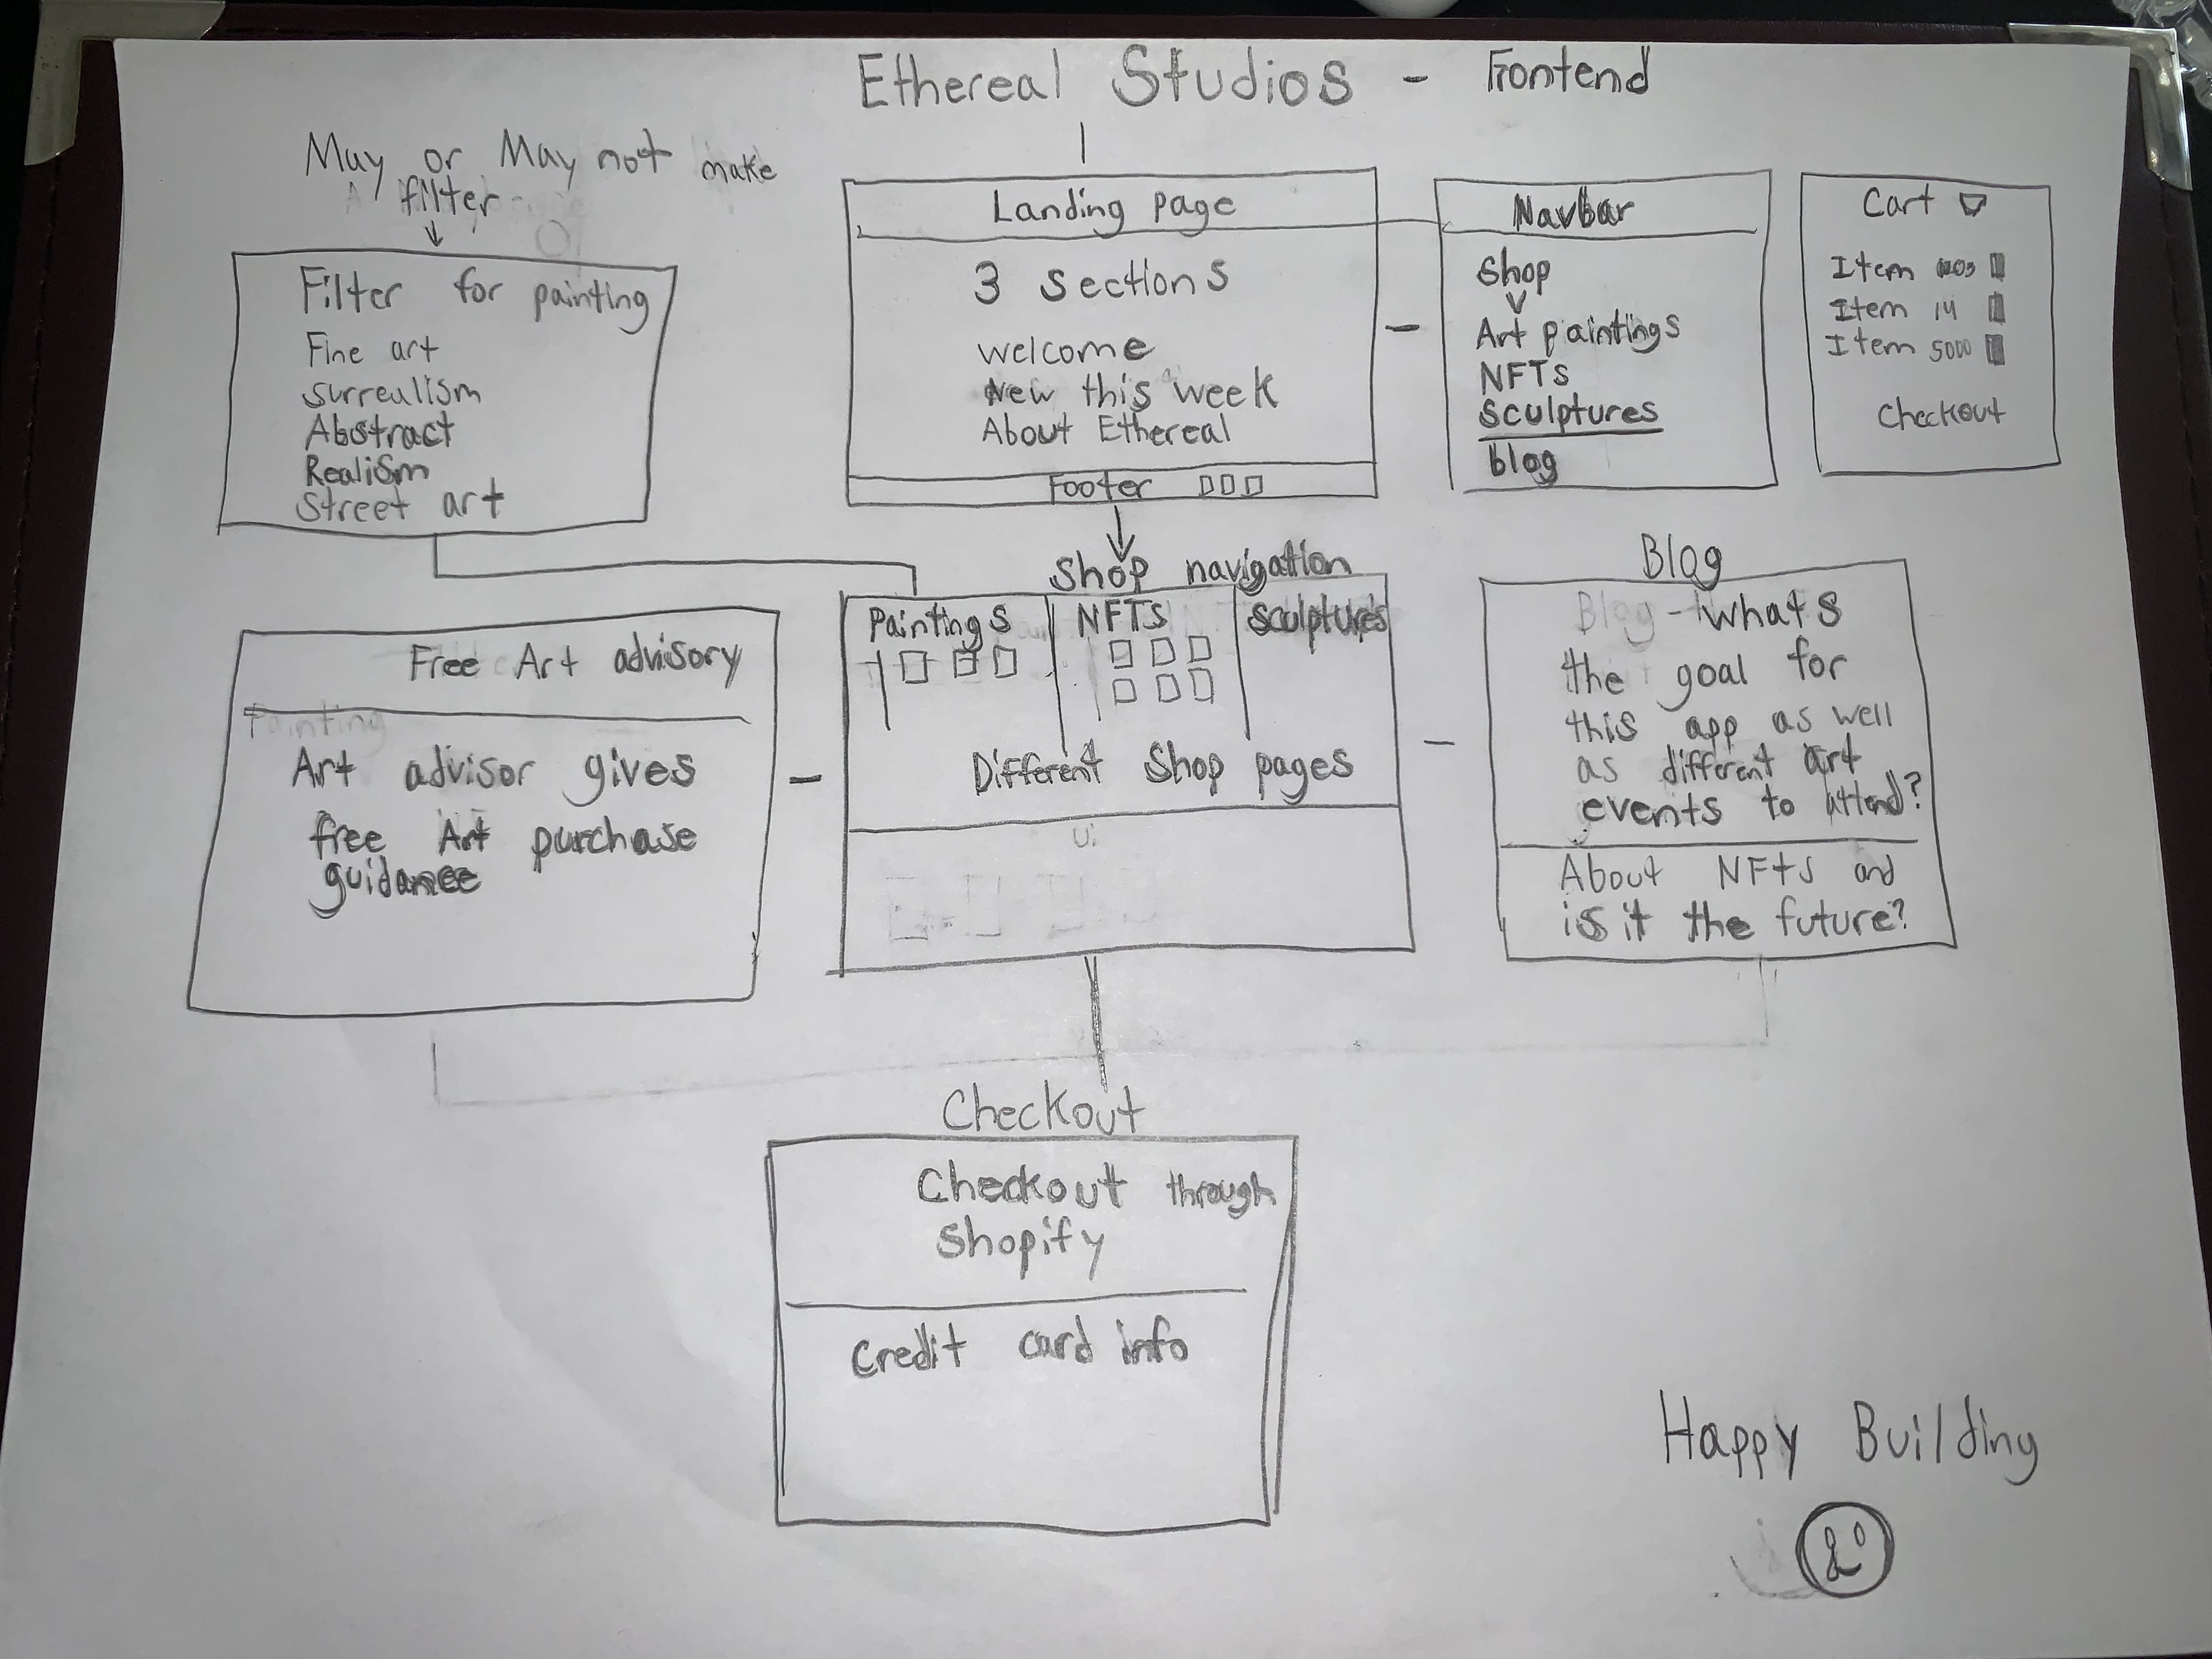 Ethereal Studios - Frontend
May or May not make
filter
Filter for painting
Fine art
Surrealism
Abstract
Realism
Street art
Landing page
3 sections
welcome
New this week
About Ethereal
Footer
Navbar
Shop
Art paintings
NFTS
Sculptures
blog
Cart
Item
Item 14
Item 5000
Checkout
Free Art advisory
Painting
Art advisor gives
free Art purchase
guidance
Shop navigation
Paintings NFTS Sculptures
Different Shop pages
Ui
Blog
Blog - what's
the goal for
this app as well
as different art
events to attend?
About NFTs and
is it the future?
Checkout
Checkout through
Shopify
Credit card info
Happy Building